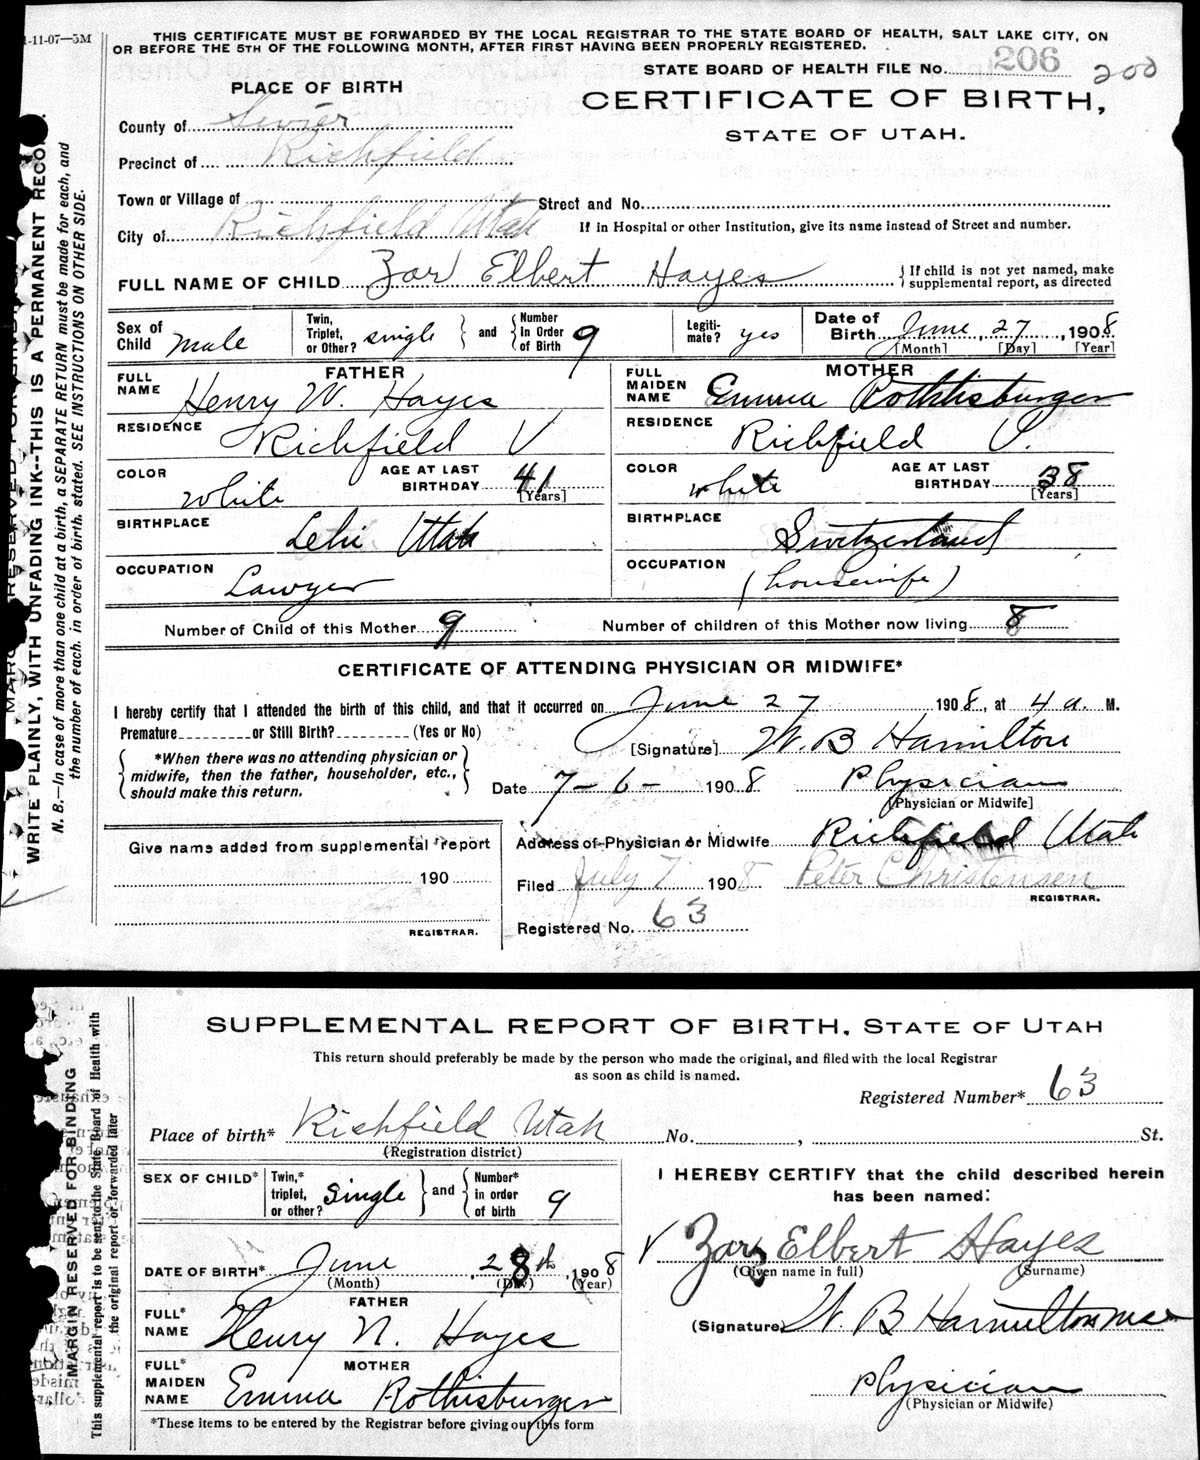 1-11-07—5M
THIS CERTIFICATE MUST BE FORWARDED BY THE LOCAL REGISTRAR TO THE STATE BOARD OF HEALTH, SALT LAKE CITY, ON
OR BEFORE THE 5TH OF THE FOLLOWING MONTH, AFTER FIRST HAVING BEEN PROPERLY REGISTERED.
STATE BOARD OF HEALTH FILE No. 206 200
PLACE OF BIRTH
CERTIFICATE OF BIRTH,
STATE OF UTAH.
County of Sevier
Precinct of Richfield
Town or Village of
Street and No.
City of Richfield Utah
If in Hospital or other Institution, give its name instead of Street and number.
FULL NAME OF CHILD Zar Elbert Hayes
If child is not yet named, make
supplemental report, as directed
Sex of Child male
Twin, Triplet, or Other? single and Number In Order of Birth 9
Legiti-mate? yes
Date of Birth June 27, 1908
[Month] [Day] [Year]
FATHER
FULL NAME Henry W. Hayes
RESIDENCE Richfield U
COLOR white AGE AT LAST BIRTHDAY 41 [Years]
BIRTHPLACE Lehi Utah
OCCUPATION Lawyer
MOTHER
FULL MAIDEN NAME Emma Rothlisburger
RESIDENCE Richfield U.
COLOR white AGE AT LAST BIRTHDAY 38 [Years]
BIRTHPLACE Switzerland
OCCUPATION (housewife)
Number of Child of this Mother 9 Number of children of this Mother now living 8
CERTIFICATE OF ATTENDING PHYSICIAN OR MIDWIFE*
I hereby certify that I attended the birth of this child, and that it occurred on June 27 1908, at 4 a. M.
Premature or Still Birth? (Yes or No)
*When there was no attending physician or
midwife, then the father, householder, etc.,
should make this return.
[Signature] W. B Hamilton
Date 7-6- 1908 Physician
[Physician or Midwife]
Address of Physician or Midwife Richfield Utah
Filed July 7 1908 Peter Christensen
REGISTRAR.
Registered No. 63
Give name added from supplemental report
190
REGISTRAR.
WRITE PLAINLY, WITH UNFADING INK--THIS IS A PERMANENT RECO
N. B.—In case of more than one child at a birth, a SEPARATE RETURN must be made for each, and
the number of each, in order of birth, stated. SEE INSTRUCTIONS ON OTHER SIDE.
SUPPLEMENTAL REPORT OF BIRTH, STATE OF UTAH
This return should preferably be made by the person who made the original, and filed with the local Registrar
as soon as child is named.
Registered Number* 63
Place of birth* Richfield Utah No. , St.
(Registration district)
SEX OF CHILD*
Twin,* triplet, or other? Single and Number* in order of birth 9
DATE OF BIRTH* June 28th, 1908
(Month) (Day) (Year)
FATHER
FULL* NAME Henry N. Hayes
MOTHER
FULL* MAIDEN NAME Emma Rothisburger
*These items to be entered by the Registrar before giving out this form
I HEREBY CERTIFY that the child described herein
has been named:
Zar Elbert Hayes
(Given name in full) (Surname)
(Signature) W. B Hamilton
Physician
(Physician or Midwife)
MARGIN RESERVED FOR BINDING
This supplemental report is to be sent to the State Board of Health with
the original report or forwarded later